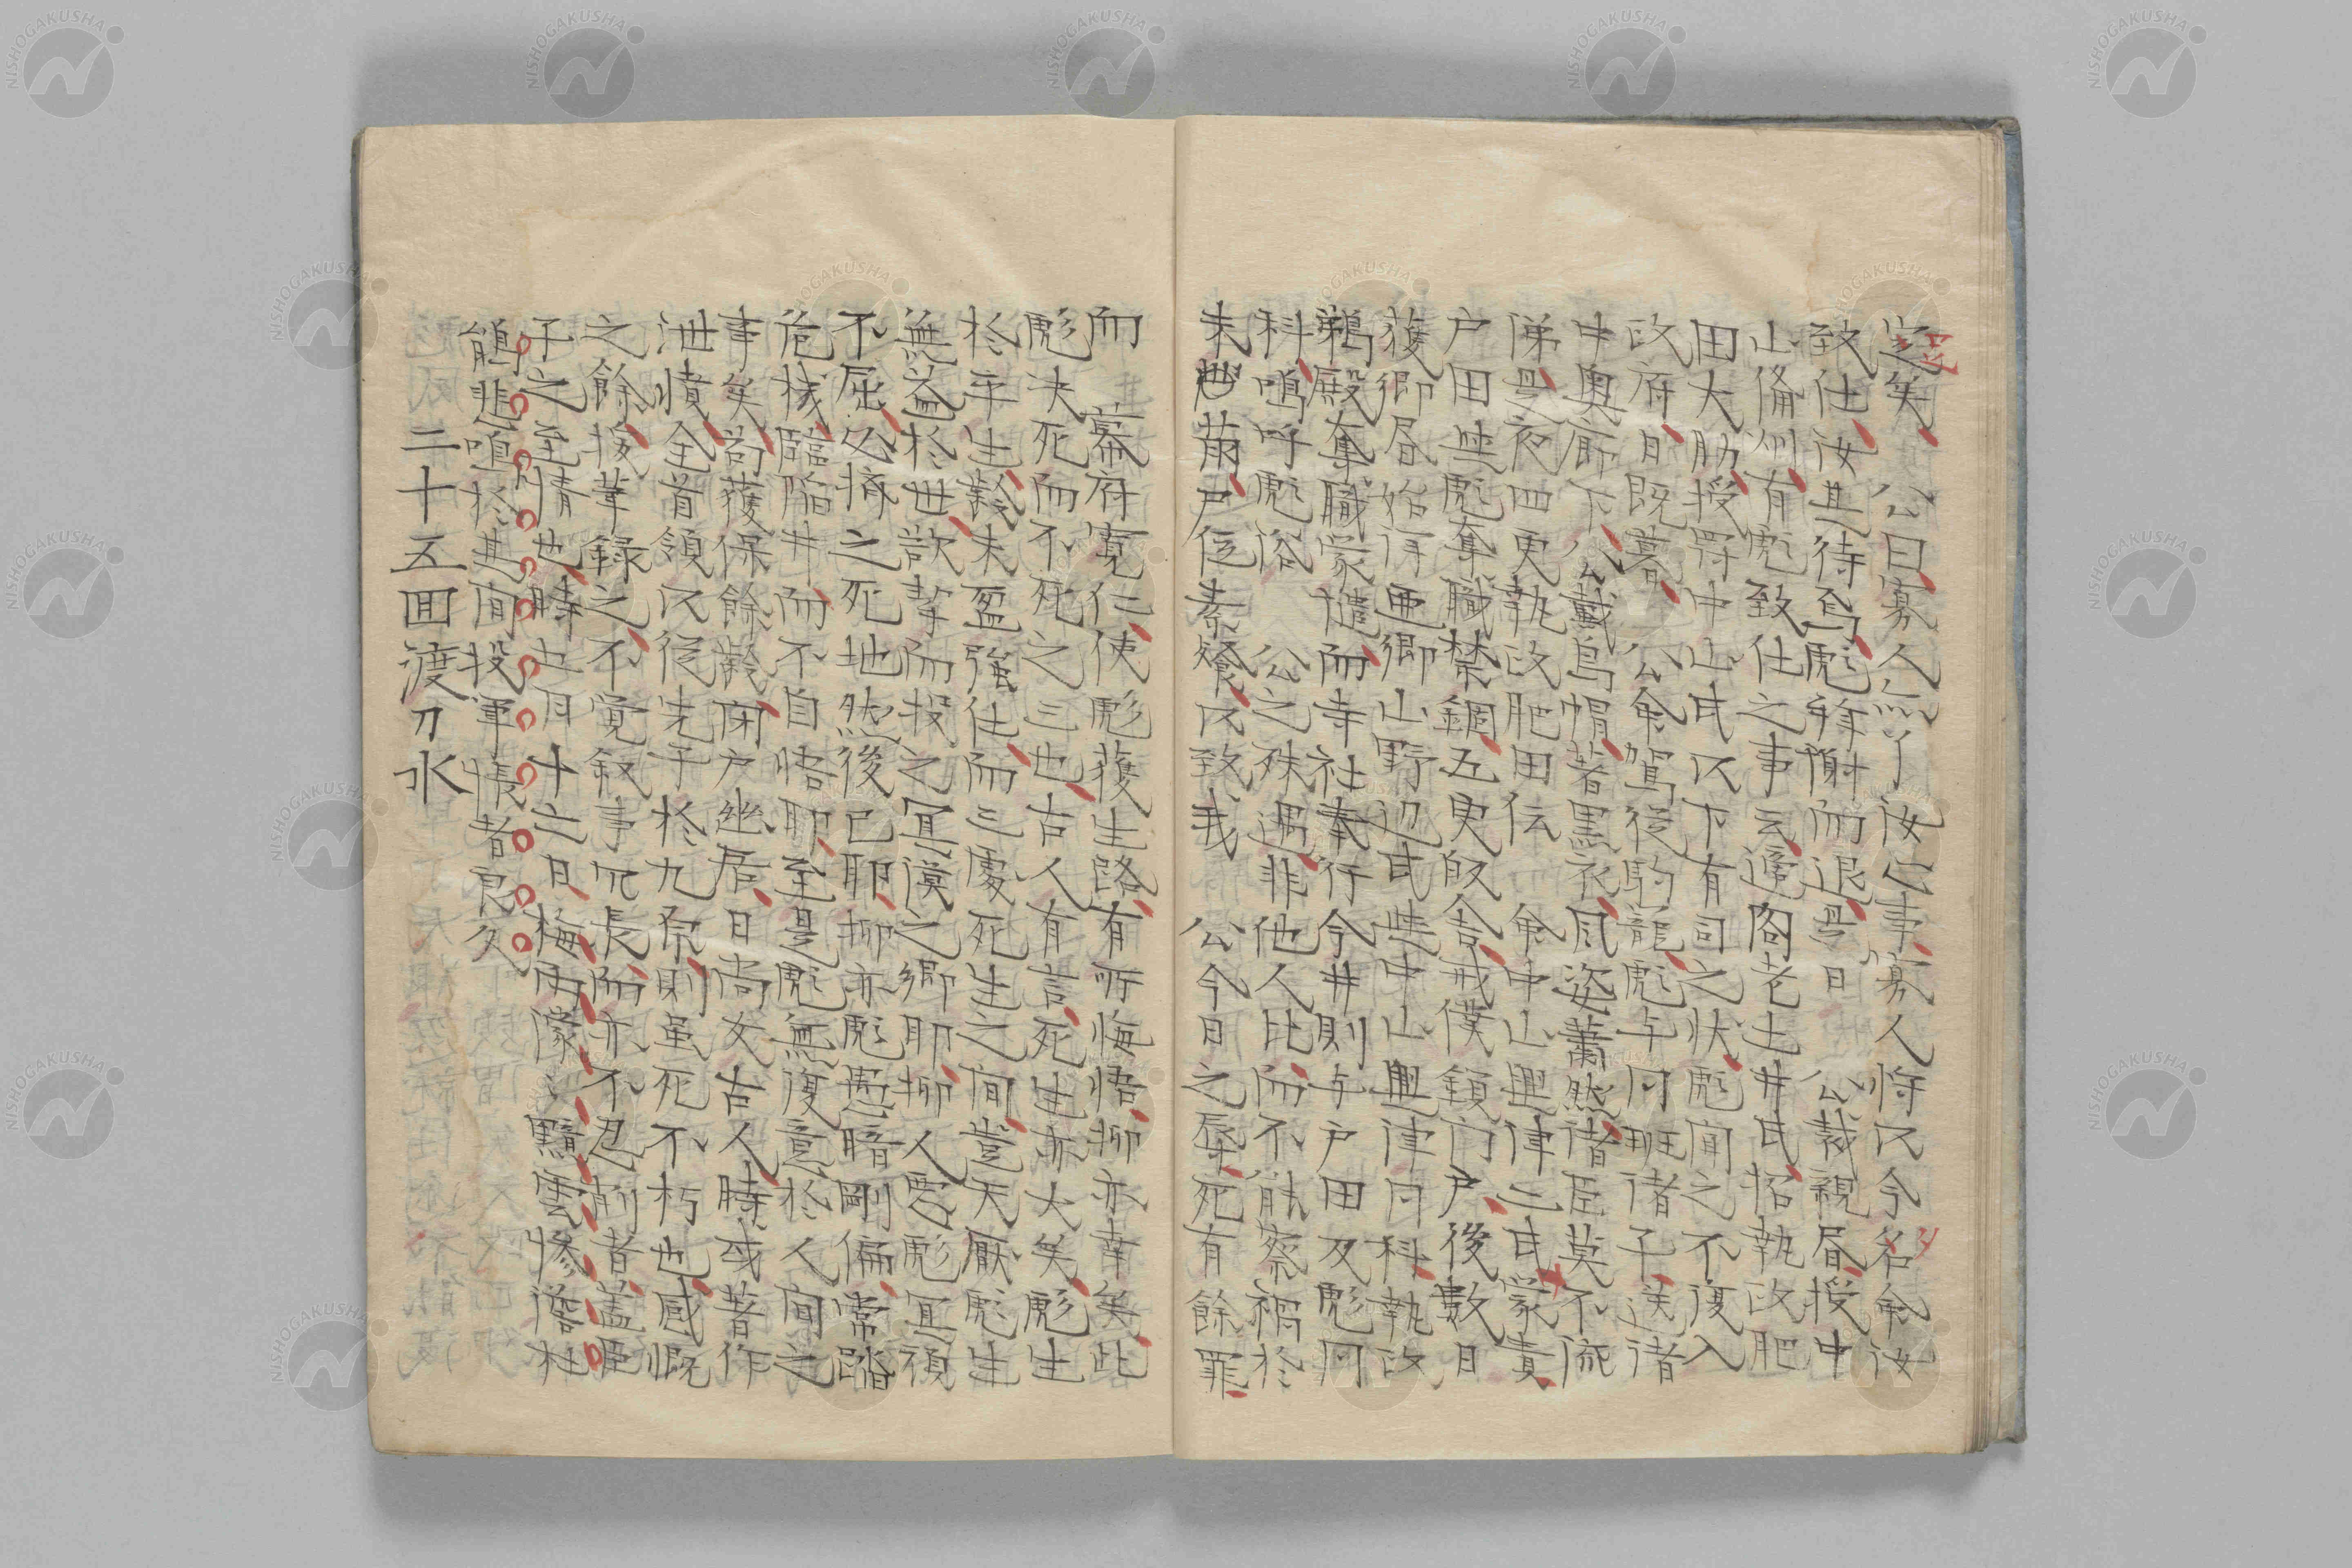 定矣公曰寡人無了汝之事寡人将以今名命汝
致仕汝其待焉彪拜謝而退是日公裁親昏授中
山備州有彪致仕之事云遠閣老土井氏招執政肥
田大助授符中山氏以下有司之状彪聞之不復入
政府日既暮公命駕従駒龍彪与同班諸子送諸
中奥廊下公戴烏帽著黒衣風姿蕭然諸臣莫不流
涕是夜四更執政肥田伝命中山興津二氏蒙責
戸田世彪奪職禁錮五更皈舎戒僕鎖門戸後數日
獲郷昏始得垂郷山野辺氏世中山興津同科執政
鵜殿奪職蒙譴而寺社奉行今井則与戸田及彪同
科嗚呼彪俗公之殊遇非他人比而不能察禍於
未萠尸位素餐以致我公今日之辱死有餘罪
而幕府寛仁使彪獲生路有所悔悟抑亦幸矣此
彪決死而不死之三也古人有言死生亦大矣彪生
於平生齢未盈強仕而三處死生之間豈天厭彪生
無益於世欲挈而投之冥漠之郷耶抑人悪彪冥頑
不屈必擠之死地然後已耶抑亦彪愚暗剛偏常踏
危機臨陥井而不自悟耶至是彪無復意於人間之
事矣苟獲保餘齢閉戸幽居日尚友古人時或著作
泄憤全首領以従先子於九原則虽死不朽也感慨
之餘援筆録之不覚叙事冗長而亦不忍削者盖臣
子之至情也時也月十之日梅雨濛々黯雲惨澹杜
鵑悲啼於其間投筆悵者良久
二十五回渡刀水